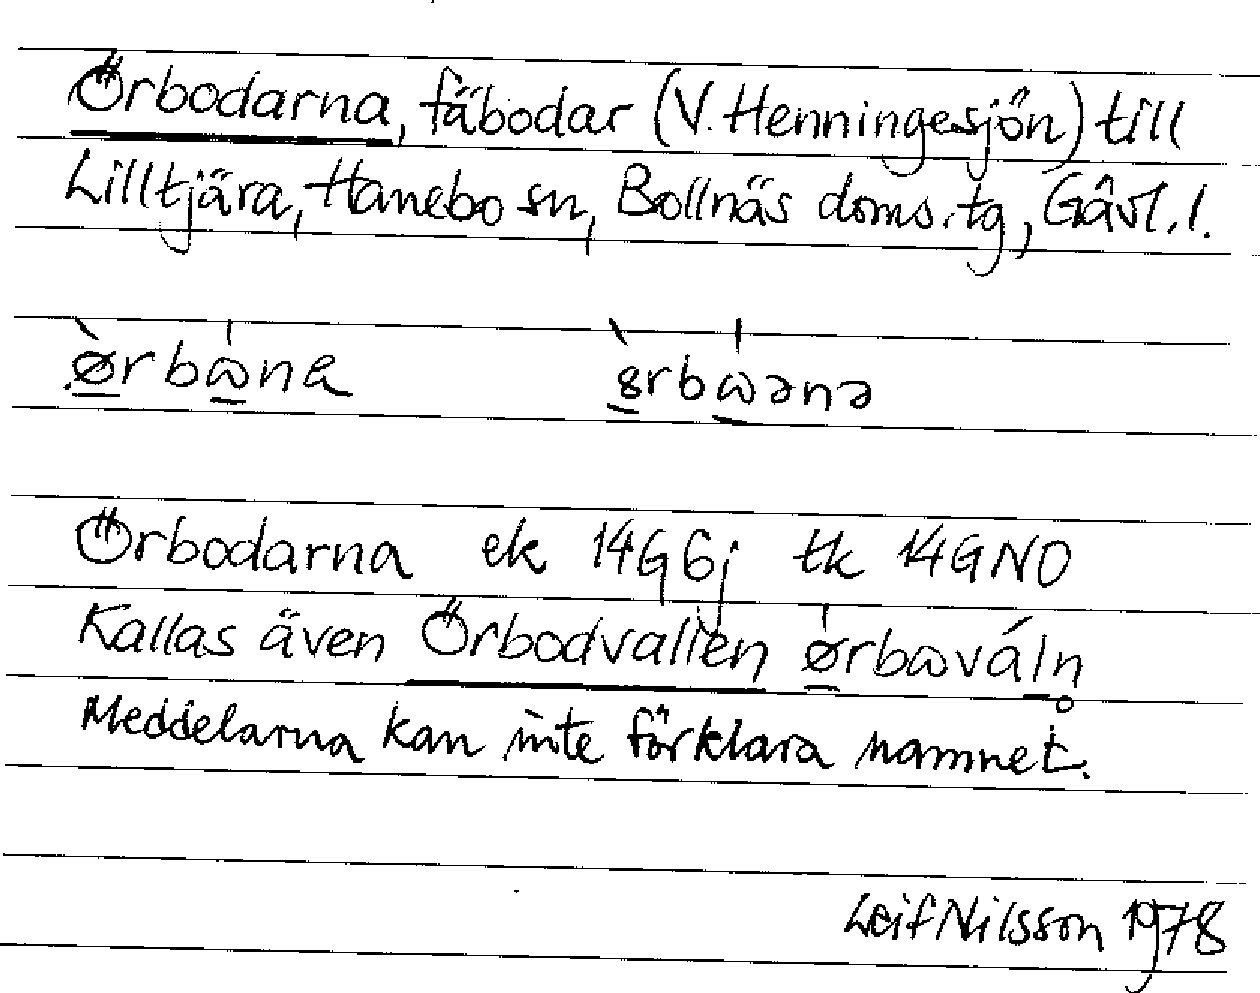 Örbodarna, fäbodar (V. Henningesjön) till
Lilltjära, Hanebo sn, Bollnäs doms.tg, Gävl. l.
ø̀rbω̍na ȣ̀rbω̍ənə
Örbodarna ek 14G6j tk 14GNO
Kallas även Örbodvallen ø̍rbωváln̥
Meddelarna kan inte förklara namnet.
Leif Nilsson 1978